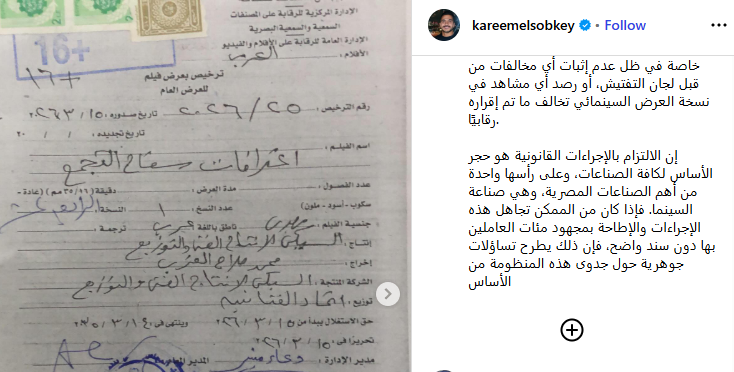 الإدارة المركزية للرقابة على المصنفات
السمعية والسمعية البصرية
الإدارة العامة للرقابة على الأفلام والفيديو
الأفلام : العرب
16+
+١٦
ترخيص بعرض فيلم
للعرض العام
رقم الترخيص : ٢٠٢٦/٢٥ تاريخ صدوره : ٢٠٢٦/٣/١٥
تاريخ تجديده : / / ٢٠
اسم الفيلم : اعترافات سفاح التجمع
عدد الفصول : مدة العرض : دقيقة (٣٥/١٦ مم) (عادة -
سكوب - أسود - ملون) عدد النسخ : ١ النسخة : الرابعة
جنسية الفيلم : مصري ناطق باللغة عربي ترجمة :
إنتاج : السبكي للإنتاج الفني والتوزيع
إخراج : محمد صلاح العزب
الشركة المنتجة : السبكي للإنتاج الفني والتوزيع
توزيع : اتحاد الفنانين
حق الاستغلال يبدأ من : ٢٠٢٦/٣/١٥ وينتهى فى : ٢٠٣٥/٣/١٤
تحريرًا فى : ٢٠٢٦/٣/١٥
مدير الإدارة : دعاء المدير العام
kareemelsobkey • Follow
خاصة في ظل عدم إثبات أي مخالفات من
قبل لجان التفتيش، أو رصد أي مشاهد في
نسخة العرض السينمائي تخالف ما تم إقراره
رقابيًا.
إن الالتزام بالإجراءات القانونية هو حجر
الأساس لكافة الصناعات، وعلى رأسها واحدة
من أهم الصناعات المصرية، وهي صناعة
السينما. فإذا كان من الممكن تجاهل هذه
الإجراءات والإطاحة بمجهود مئات العاملين
بها دون سند واضح، فإن ذلك يطرح تساؤلات
جوهرية حول جدوى هذه المنظومة من
الأساس